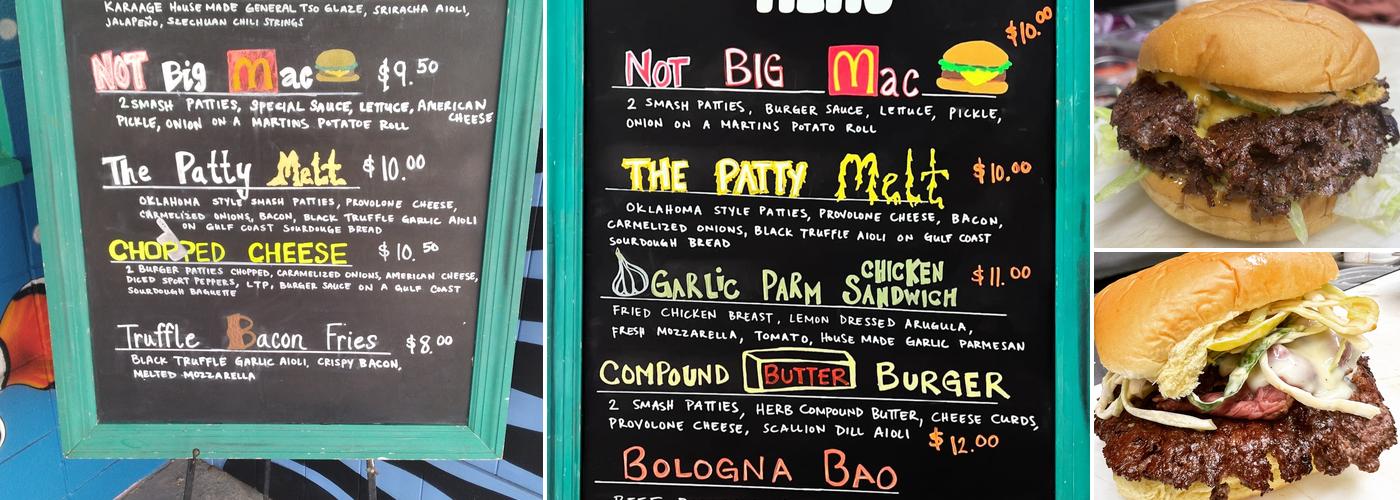 KARAAGE HOUSE MADE GENERAL TSO GLAZE, SRIRACHA AIOLI,
JALAPEÑO, SZECHUAN CHILI STRINGS
NOT Big Mac $9.50
2 SMASH PATTIES, SPECIAL SAUCE, LETTUCE, AMERICAN CHEESE
PICKLE, ONION ON A MARTINS POTATOE ROLL
The Patty Melt $10.00
OKLAHOMA STYLE SMASH PATTIES, PROVOLONE CHEESE,
CARMELIZED ONIONS, BACON, BLACK TRUFFLE GARLIC AIOLI
ON GULF COAST SOURDOUGE BREAD
CHOPPED CHEESE $10.50
2 BURGER PATTIES CHOPPED, CARAMELIZED ONIONS, AMERICAN CHEESE,
DICED SPORT PEPPERS, LTP, BURGER SAUCE ON A GULF COAST
SOURDOUGH BAGUETTE
Truffle Bacon Fries $8.00
BLACK TRUFFLE GARLIC AIOLI, CRISPY BACON,
MELTED MOZZARELLA
MENU
NOT BIG Mac $10.00
2 SMASH PATTIES, BURGER SAUCE, LETTUCE, PICKLE,
ONION ON A MARTINS POTATO ROLL
THE PATTY Melt $10.00
OKLAHOMA STYLE PATTIES, PROVOLONE CHEESE, BACON,
CARMELIZED ONIONS, BLACK TRUFFLE AIOLI ON GULF COAST
SOURDOUGH BREAD
GARLIC PARM CHICKEN SANDWICH $11.00
FRIED CHICKEN BREAST, LEMON DRESSED ARUGULA,
FRESH MOZZARELLA, TOMATO, HOUSE MADE GARLIC PARMESAN
COMPOUND BUTTER BURGER
2 SMASH PATTIES, HERB COMPOUND BUTTER, CHEESE CURDS,
PROVOLONE CHEESE, SCALLION DILL AIOLI $12.00
BOLOGNA BAO